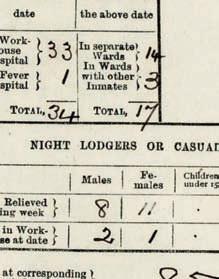 date the above date
Work-
ouse
spital } 33 In separate
Wards } 14
Fever
spital } 1 In Wards
with other
Inmates } 3
TOTAL, 34 TOTAL, 17
NIGHT LODGERS OR CASUA
Males Fe-
males Children
under 15
Relieved
ing week } 8 11 .
in Work-
se at date } 2 1 .
at corresponding }